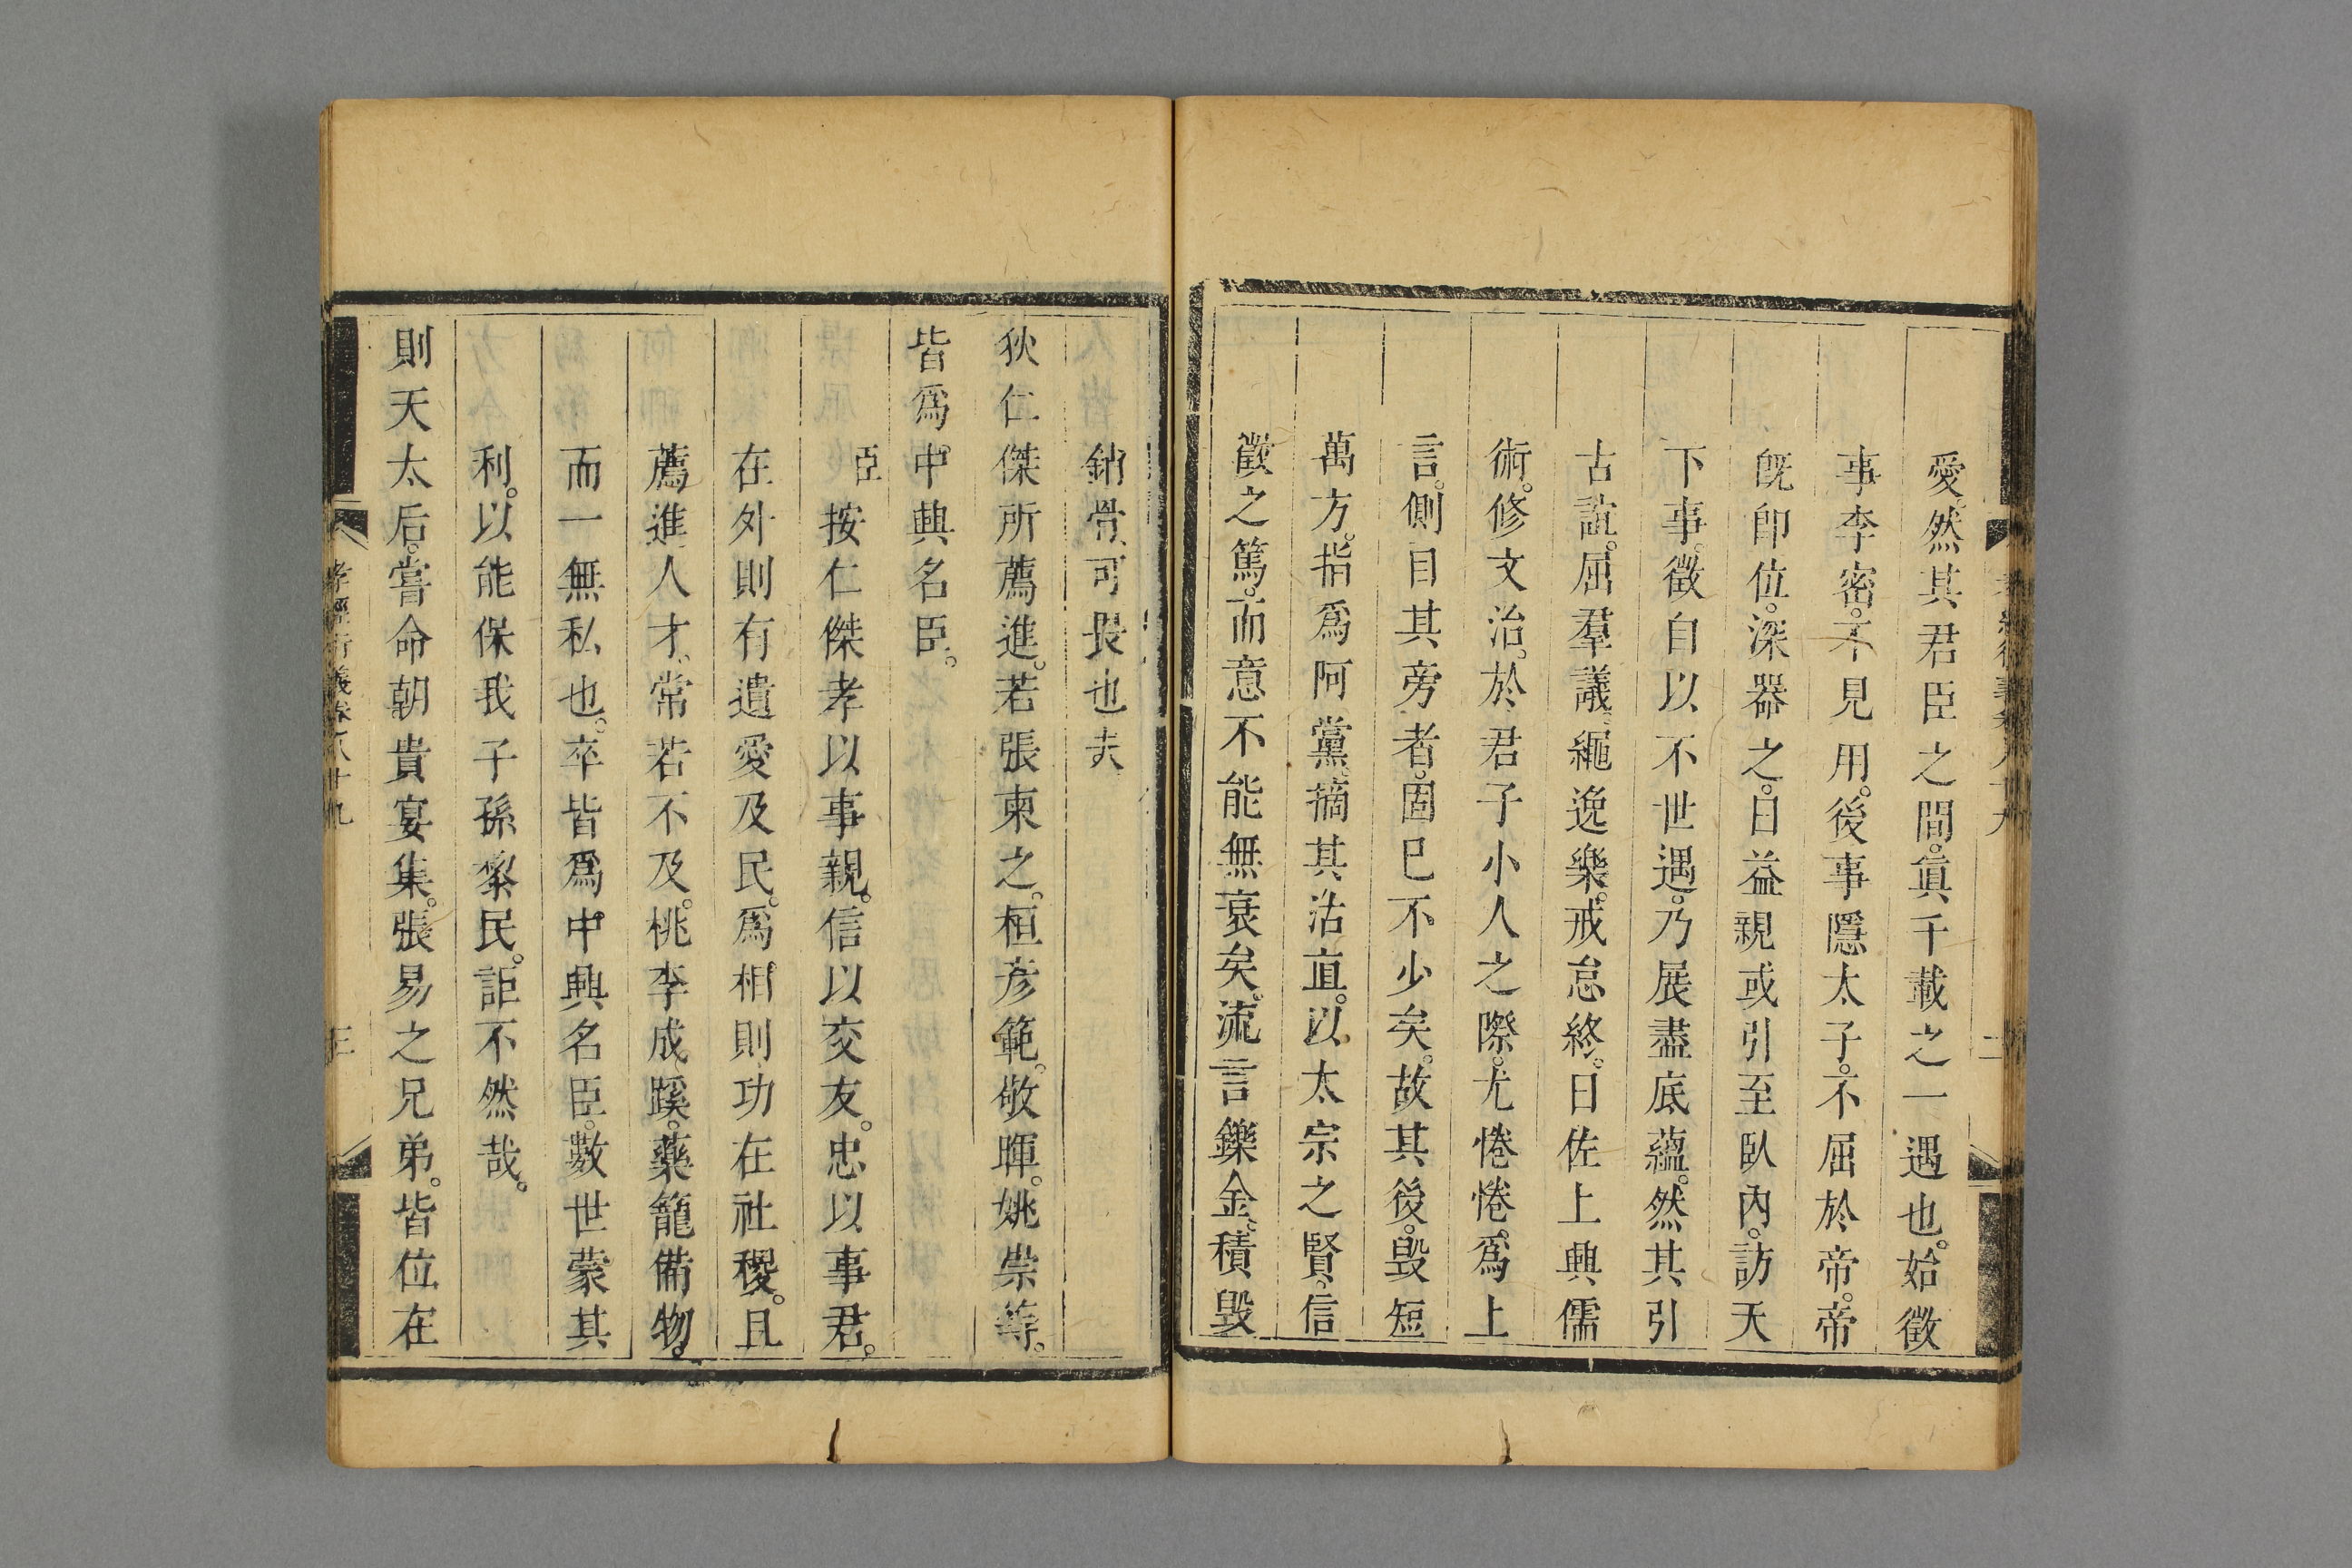 愛然其君臣之間。眞千載之一遇也。始徵
事李密。不見用。後事隱太子。不屈於帝。帝
旣卽位。深器之。日益親或引至臥內。訪天
下事。徵自以不世遇。乃展盡底蘊。然其引
古誼。屈羣議。繩逸樂。戒怠終。日佐上興儒
術。修文治。於君子小人之際。尤惓惓。爲上
言。側目其旁者。固已不少矣。故其後。毀短
萬方。指爲阿黨。摘其沽直。以太宗之賢。信
徵之篤。而意不能無衰矣。流言鑠金。積毀
銷骨可畏也夫
狄仁傑所薦進。若張柬之。桓彥範。敬暉。姚崇等。
皆爲中興名臣。
臣按仁傑孝以事親。信以交友。忠以事君。
在外則有遺愛及民。爲相則功在社稷。且
薦進人才。常若不及。桃李成蹊。藥籠備物。
而一無私也。卒皆爲中興名臣。數世蒙其
利。以能保我子孫黎民。詎不然哉。
則天太后。嘗命朝貴宴集。張易之兄弟。皆位在
孝經衍義卷八十九 三